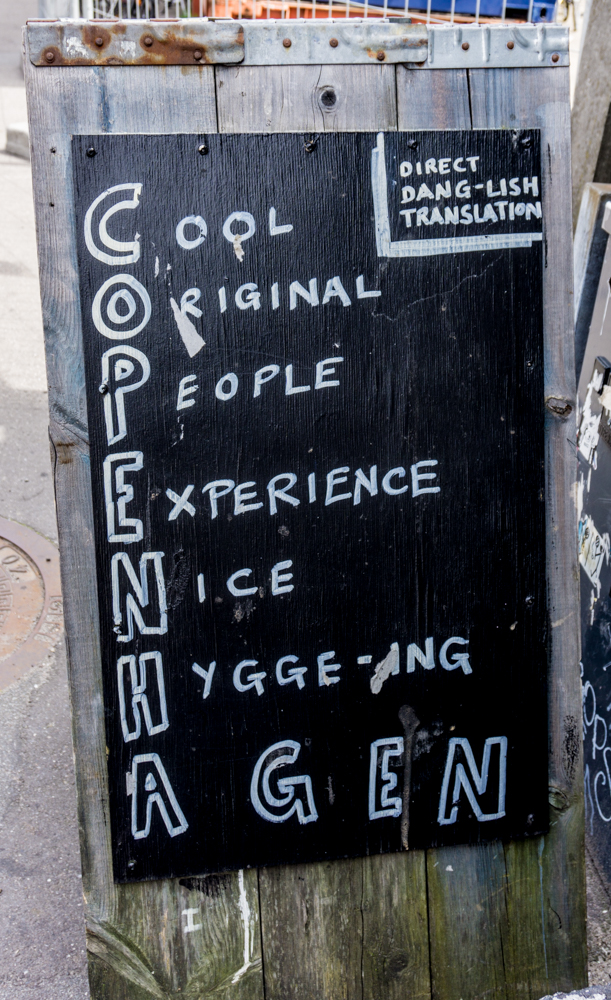 DIRECT
DANG-LISH
TRANSLATION
COOL
ORIGINAL
PEOPLE
EXPERIENCE
NICE
HYGGE-ING
AGEN